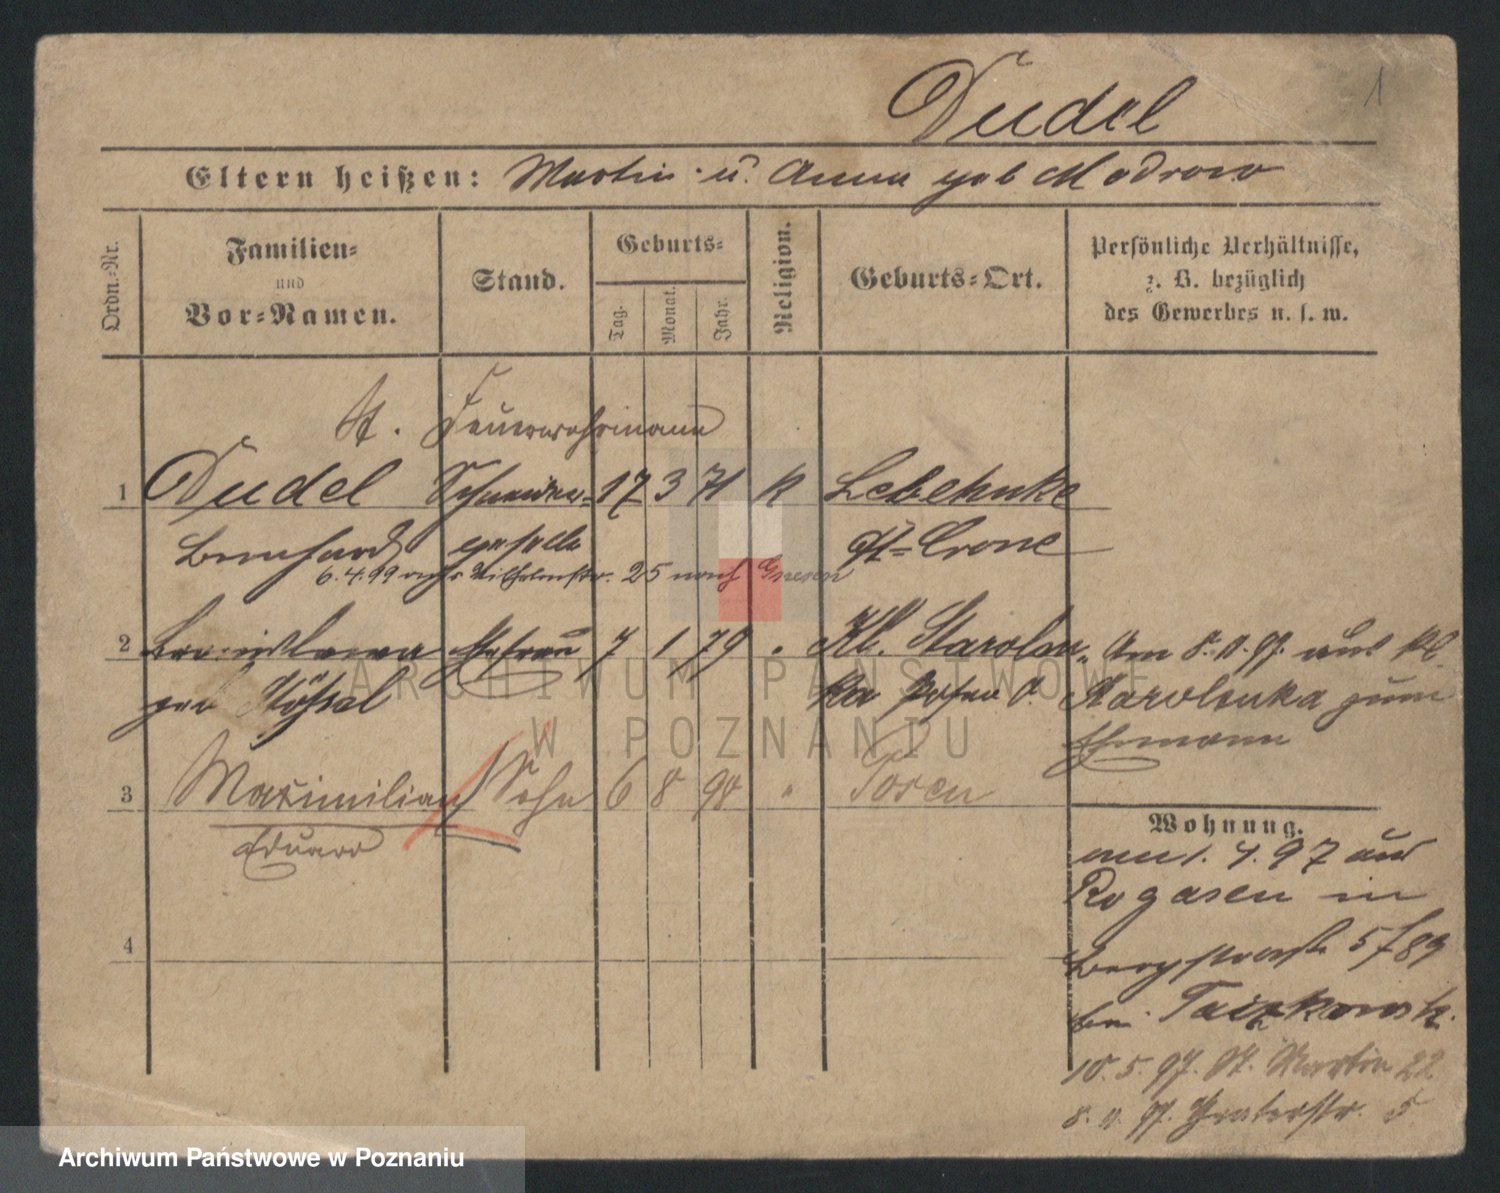 1
Dudel
Eltern heißen: Martin u. Anna geb Modrow
Ordn.-Nr.
Familien-
und
Vor-Namen.
Stand.
Geburts-
Tag.
Monat.
Jahr.
Religion.
Geburts-Ort.
Persönliche Verhältnisse,
z. B. bezüglich
des Gewerbes u. s. w.
St. Feuerwehrmann
1 Dudel Schneider- 17 3 71 k Lebehnke
Bernhard geselle Dt-Crone
6.4.99 Wilhelmstr. 25 nach Gnesen
2 Bronislawa Ehefrau 7 1 79 " Kl. Starolen- Am 8. 11. 97. aus Kl.
geb Stössel ka Posen O. Starolenka zum
Ehemann
3 Maximilian Sohn 6 8 98 " Posen
Eduard
4
Wohnung.
am 1. 4. 97 aus
Rogasen in
Bergstraße 5/89
bei
10. 5. 97. St. Martin 22
8. 11. 97. 5
ARCHIWUM PAŃSTWOWE
W POZNANIU
Archiwum Państwowe w Poznaniu